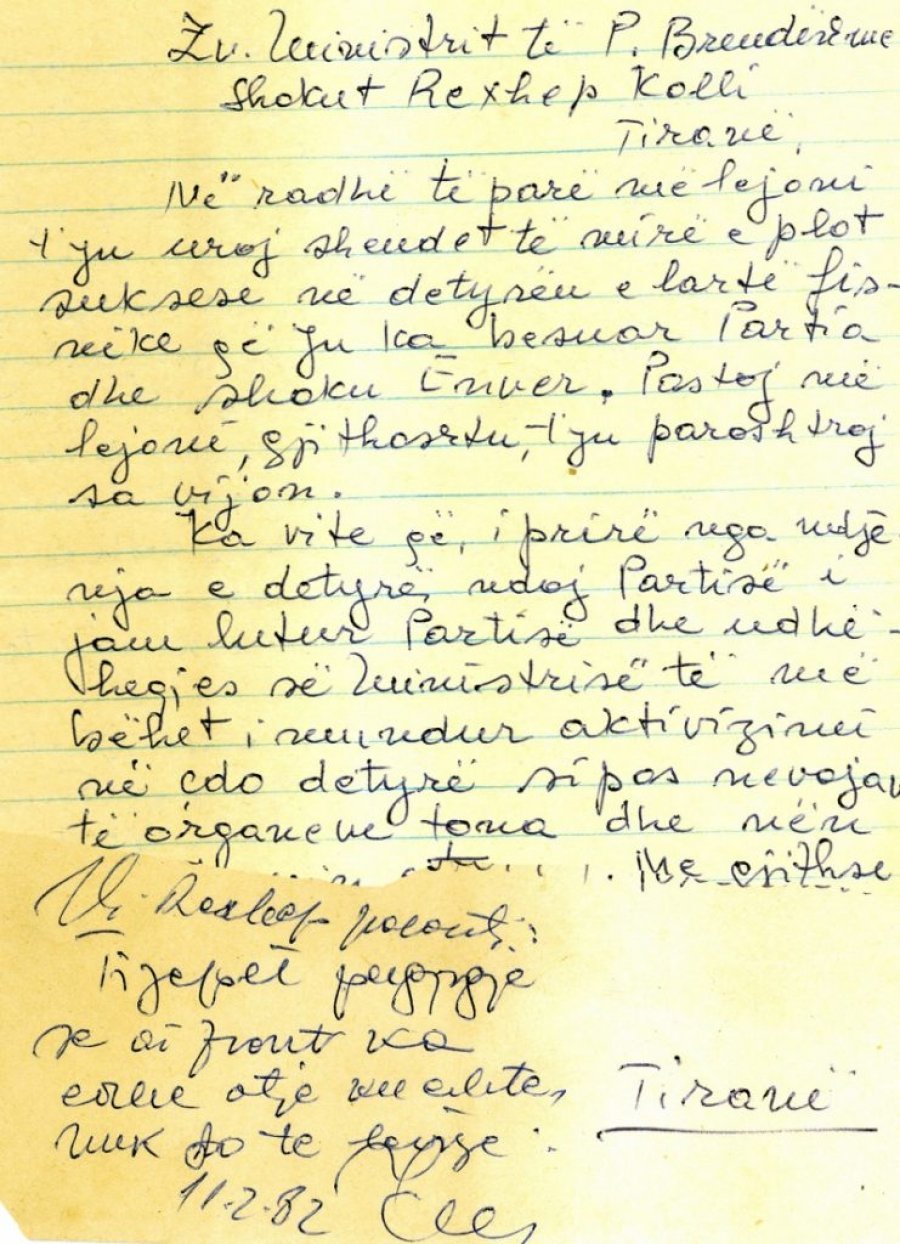 Zv. Ministrit të P. Brendëshme
Shokut Rexhep Kolli
Tiranë,
Në radhë të parë më lejoni
t'ju uroj shendet të mirë e plot
suksese në detyrën e lartë fis-
nike që Ju ka besuar Partia
dhe shoku Enver. Pastaj më
lejoni, gjithashtu, t'ju parashtroj
sa vijon.
Ka vite që, i prirë nga ndje
nja e detyrës ndaj Partisë i
jam lutur Partisë dhe udhë-
heqjes së Ministrisë të më
bëhet i mundur aktivizimi
në çdo detyrë sipas nevojav
të organeve tona dhe nën
Me gjithse
Rexhep
Ti jepet përgjigje
se ai front ka
edhe atje ku eshte,
nuk do te
Tiranë
11.2.82